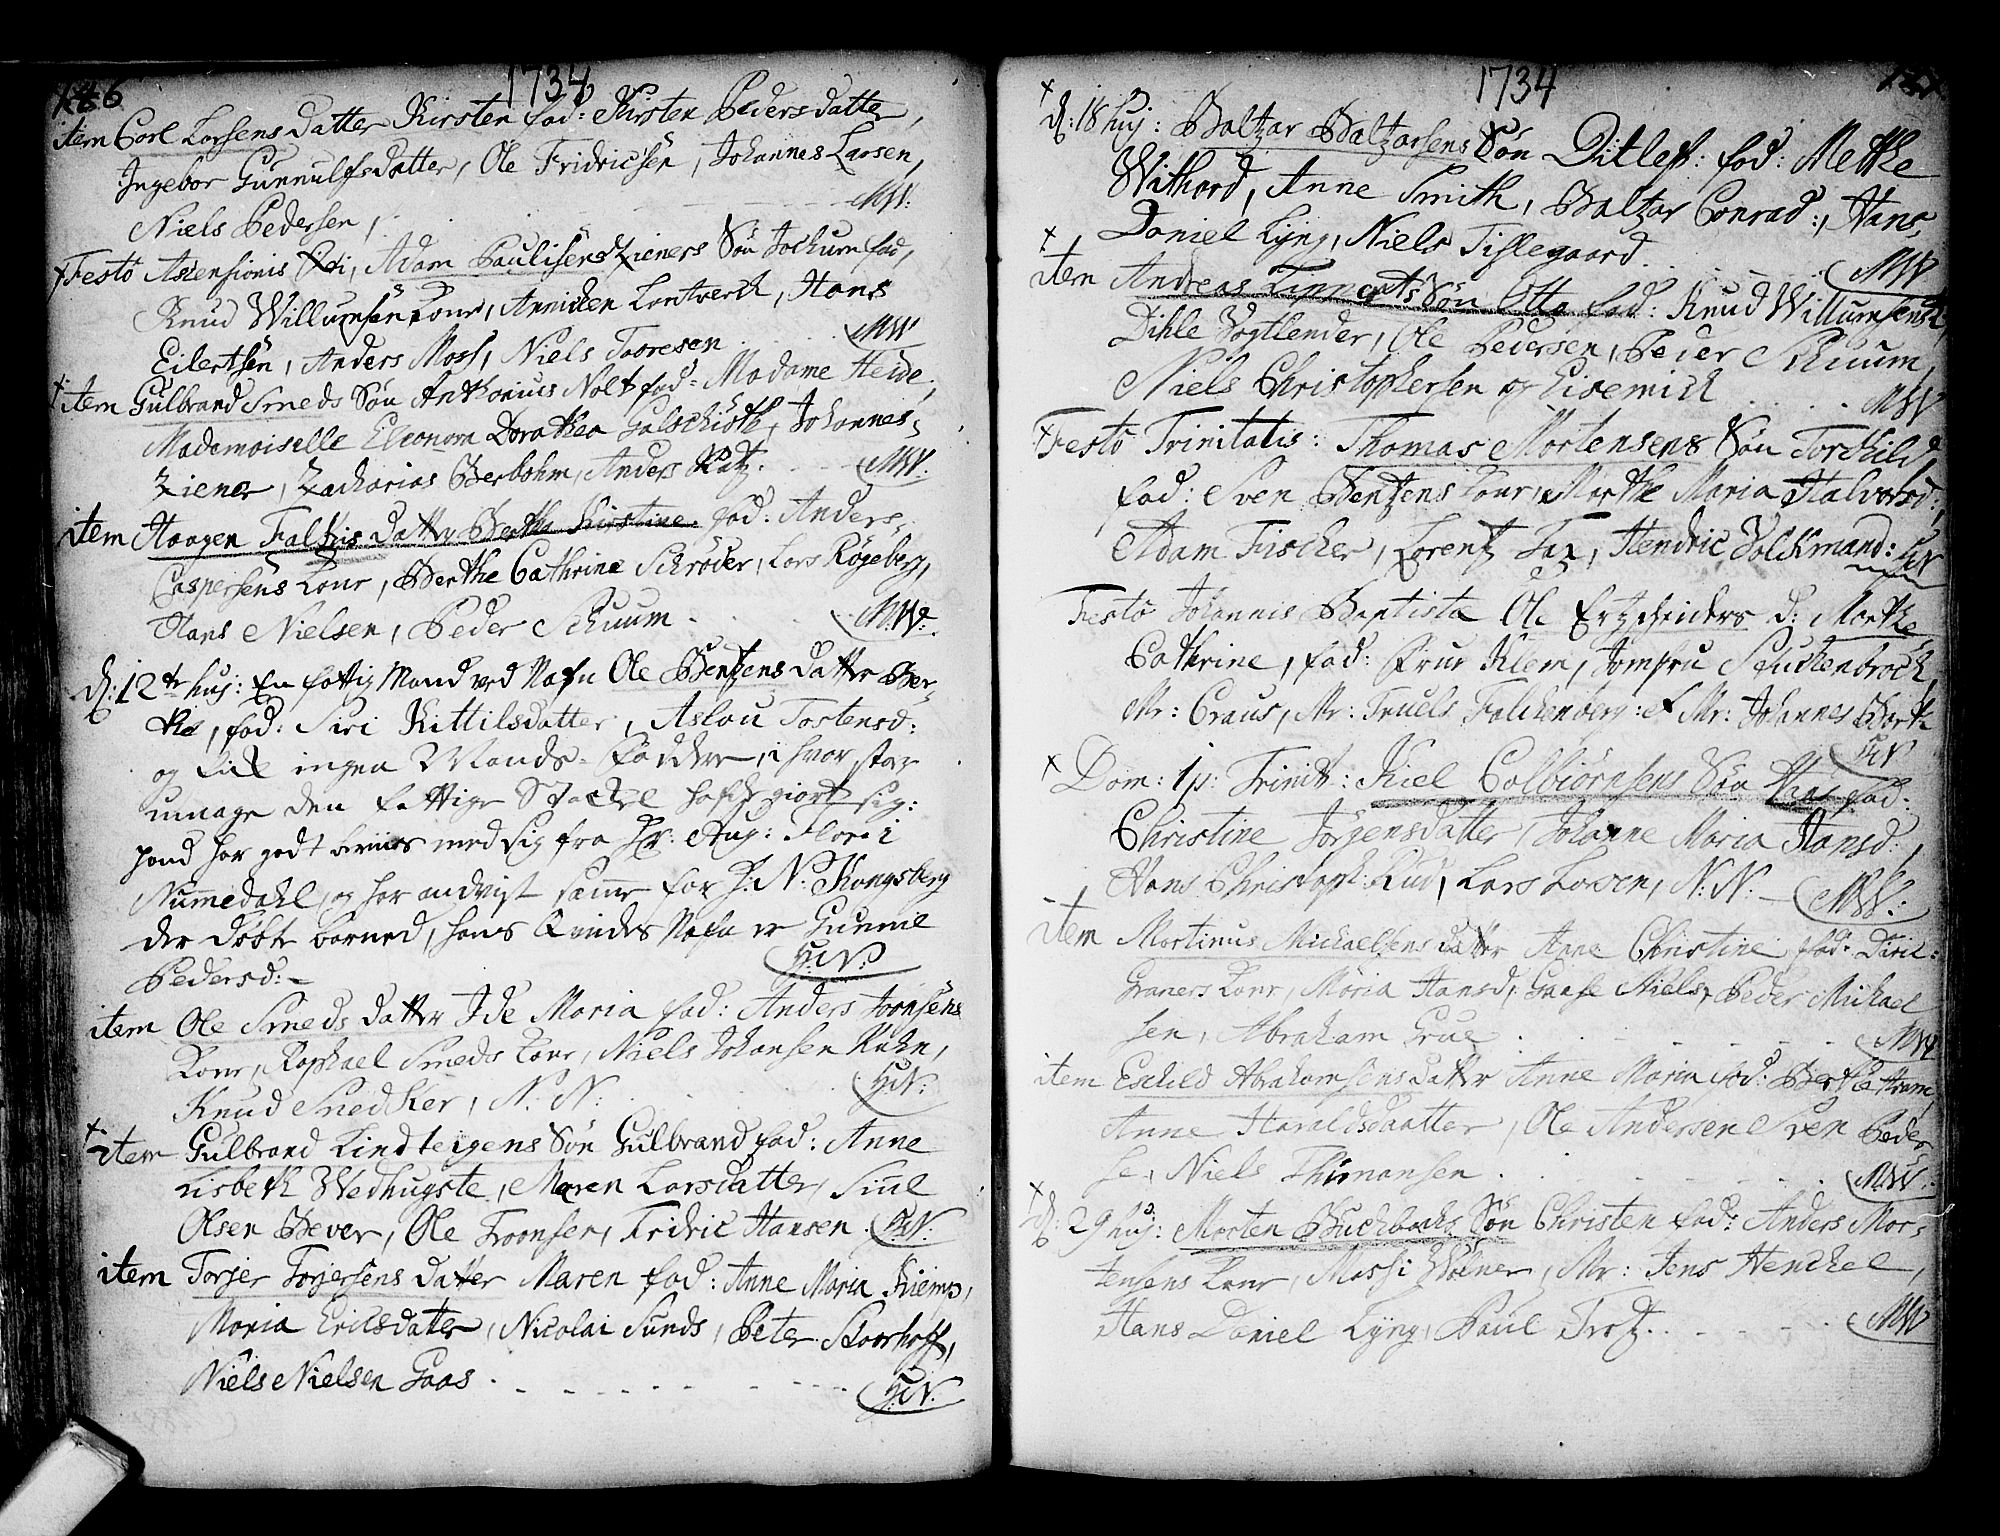 1734
item Corl Larsens datter Kirsten fad: Kirsten Pedersdatter,
Ingebor Gunnulfsdatter, Ole Fridricsen, Johannes Larsen,
Niels Pedersen, MW:
Festo Ascensionis Xti, Adam Paulisens Zieners Søn Jochum fad,
Knud Willumsens Konr, Anniken Lantverck, Hans
Eilertsen, Anders Moss, Niels Toresen MW
item Gulbrand Smeds Søn Anthonius Nolt fad: Madame Heide,
Mademoiselle Eleonora Dorathea Galschiøth, Johannes
Ziener, Zacharias Berbohm, Anders Ratz. MW:
item Haagen Falkis datter Berthe Kirstine. fad: Anders
Caspersens Konr, Berthe Cathrine Schrøder, Lars Røgeberg,
Hans Nielsen, Peder Schuum MW:
d: 12te huj: En fattig Mand ved Nafn Ole Bentzens datter Ber-
the, fad: Siri Kittilsdatter, Aslou Tostensd:
og fick ingen Mands-faddere, i hvor stor
umage den fattige Stackel hafde giort sig:
hand har godt beviis med sig fra Hr: Aug: Flor i
Nummedahl, og har andvist samme for H: N: Kongsberg
der døbte barned, hans Qvindes Nafn er Gunnil
Pedersd:- H:N:
item Ole Smeds datter Ide Maria fad: Anders Joonsens
Konr, Raphael Smeds Konr, Niels Johansen Kuhn,
Knud Snedker, N: N: H:N:
item Gulbrand Lindteigens Søn Gulbrand fad: Anne
Lisbeth Wedhugste, Maren Larsdatter, Siul
Olsen Bever, Ole Troonsen, Fridric Hansen. H:N:
item Torjer Torjersens datter Maren fad: Anne Maria Kiemp,
Maria Ericsdatter, Nicolai Sunds, Peter Storhoff,
Niels Nielsen Gaas. H:N:
1734
d: 18 huj: Baltzar Baltzarsens Søn Ditlef: fad: Mette
Withard, Anne Smith, Baltzar Conrad:, Hans
Daniel Lyng, Niels Tislegaard. MW
item Andreas Linnerts Søn Otto fad: Knud Willumsens K
Dihle Vogtlender, Ole Pedersen, Peder Schuum,
Niels Christophersen og Eisemich MW
Festo Trinitatis: Thomas Mortensens Søn Torchild
fad: Sven Bentzens Konr, Marthe Maria Halvorsd:,
Adam Fischer, Lorentz Fax, Hendric Volckmand: HN
Festo Johannis Baptista Ole Ertzscheiders d: Marthe
Cathrine, fad: Frue Klem, Jomfru Stuckenbrock,
Mr: Craus, Mr: Truels Falckenberg: & Mr: Johannes Barth
HN
Dom: 1 p: Trinit: Kiel Colbiørnsens Søn Hans fad:
Christine Jørgensdatter, Johanne Maria Hansd:,
Hans Christoph: Rud, Lars Larsen, N: N:- MW:
item Martinus Michaelsens datter Anne Christine fad: Diric
Graners Konr, Maria Hansd, Gaase Niels, Peder Michael
sen, Abraham Grue MW
item Eschild Abrahamsens datter Anne Maria fad: Berthe Kram,
Anne Haraldsdaatter, Ole Andersen, Sven Peder
se, Niels Thimansen MW:
d: 29 huj: Morten Buchbachs Søn Christen fad: Anders Mor-
tensens Konr, Massi Wølner, Mr: Jens Henckel,
Hans Daniel Lyng, Paul Trotz. MW